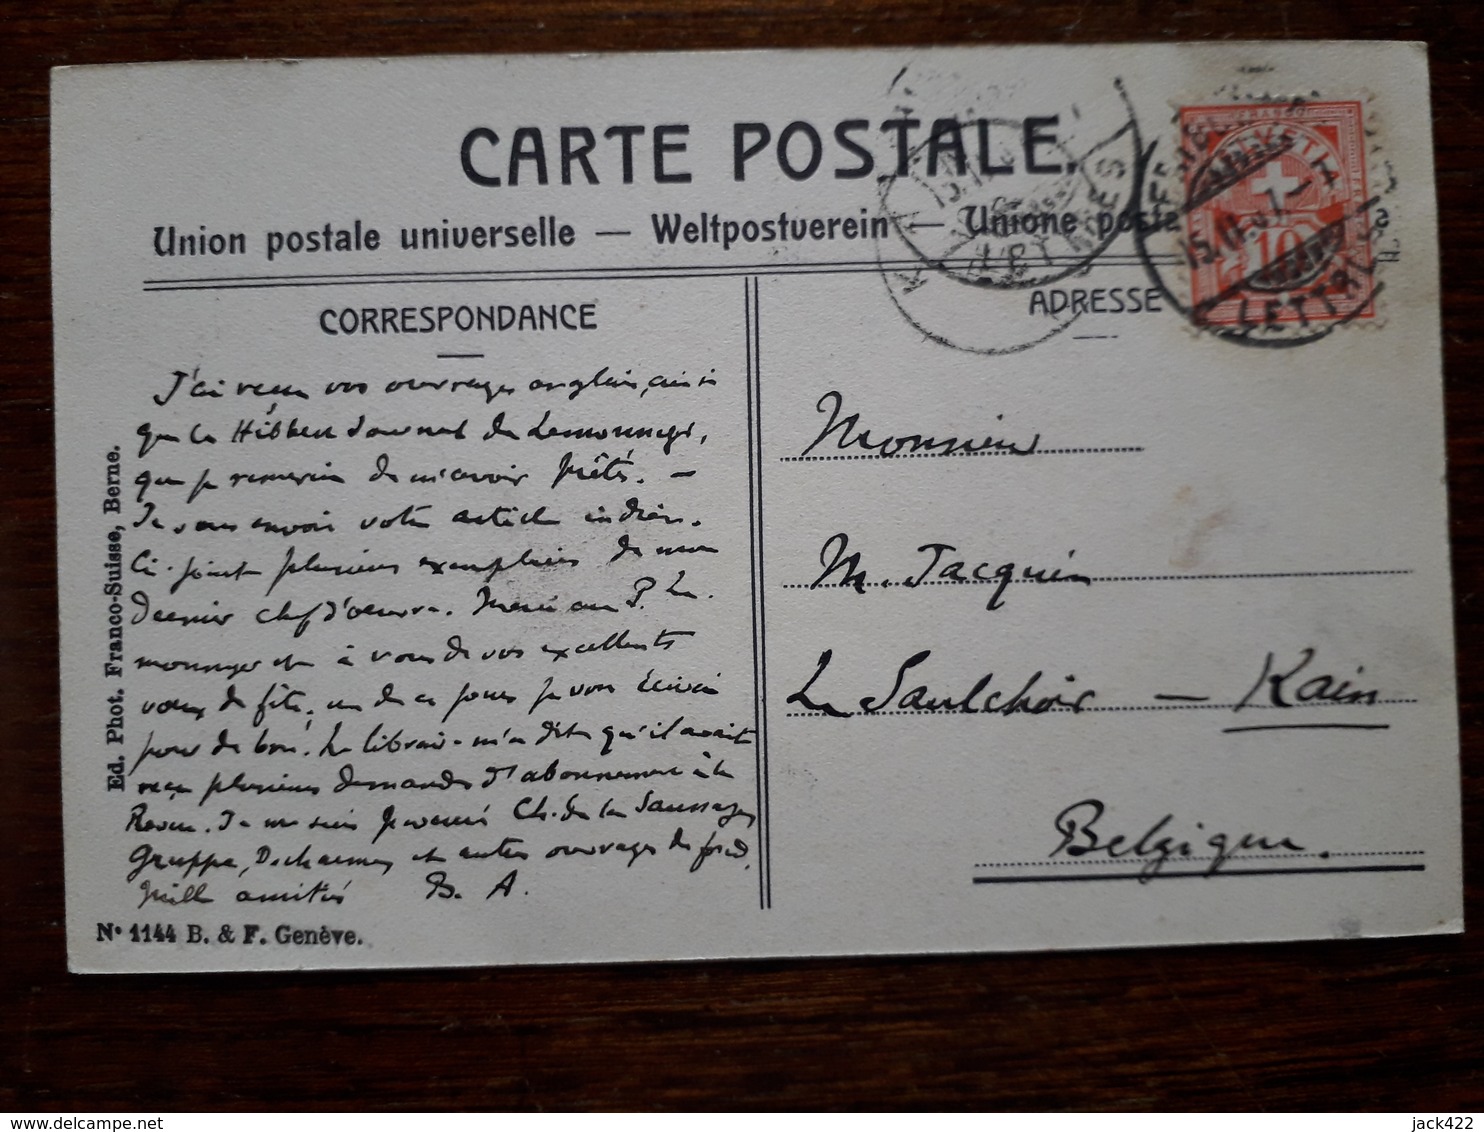 CARTE POSTALE.
Union postale universelle — Weltpostverein — Unione poste
CORRESPONDANCE
ADRESSE
J'ai reçu vos ouvrages anglais, ainsi
que le Hibbert Journal du Lemonnyer,
que je remercie de m'avoir prêtés. —
Je vous envoie votre article indien.
Ci-joint plusieurs exemplaires de mon
dernier chef d'œuvre. Merci au P. Le
monnyer et à vous de vos excellents
vœux de fête, un de ces jours je vous écrirai
pour de bon. Le libraire m'a dit qu'il avait
reçu plusieurs demandes d'abonnement à la
Revue. Je me suis procuré Ch. de la Saussaye
Gruppe, Decharme et autres ouvrages de fond.
Mille amitiés B. A.
Monsieur
M. Jacquin
Le Saulchoir — Kain
Belgique.
Ed. Phot. Franco-Suisse, Berne.
Nº 1144 B. & F. Genève.
HELVETIA
10
LETTRES
jack422